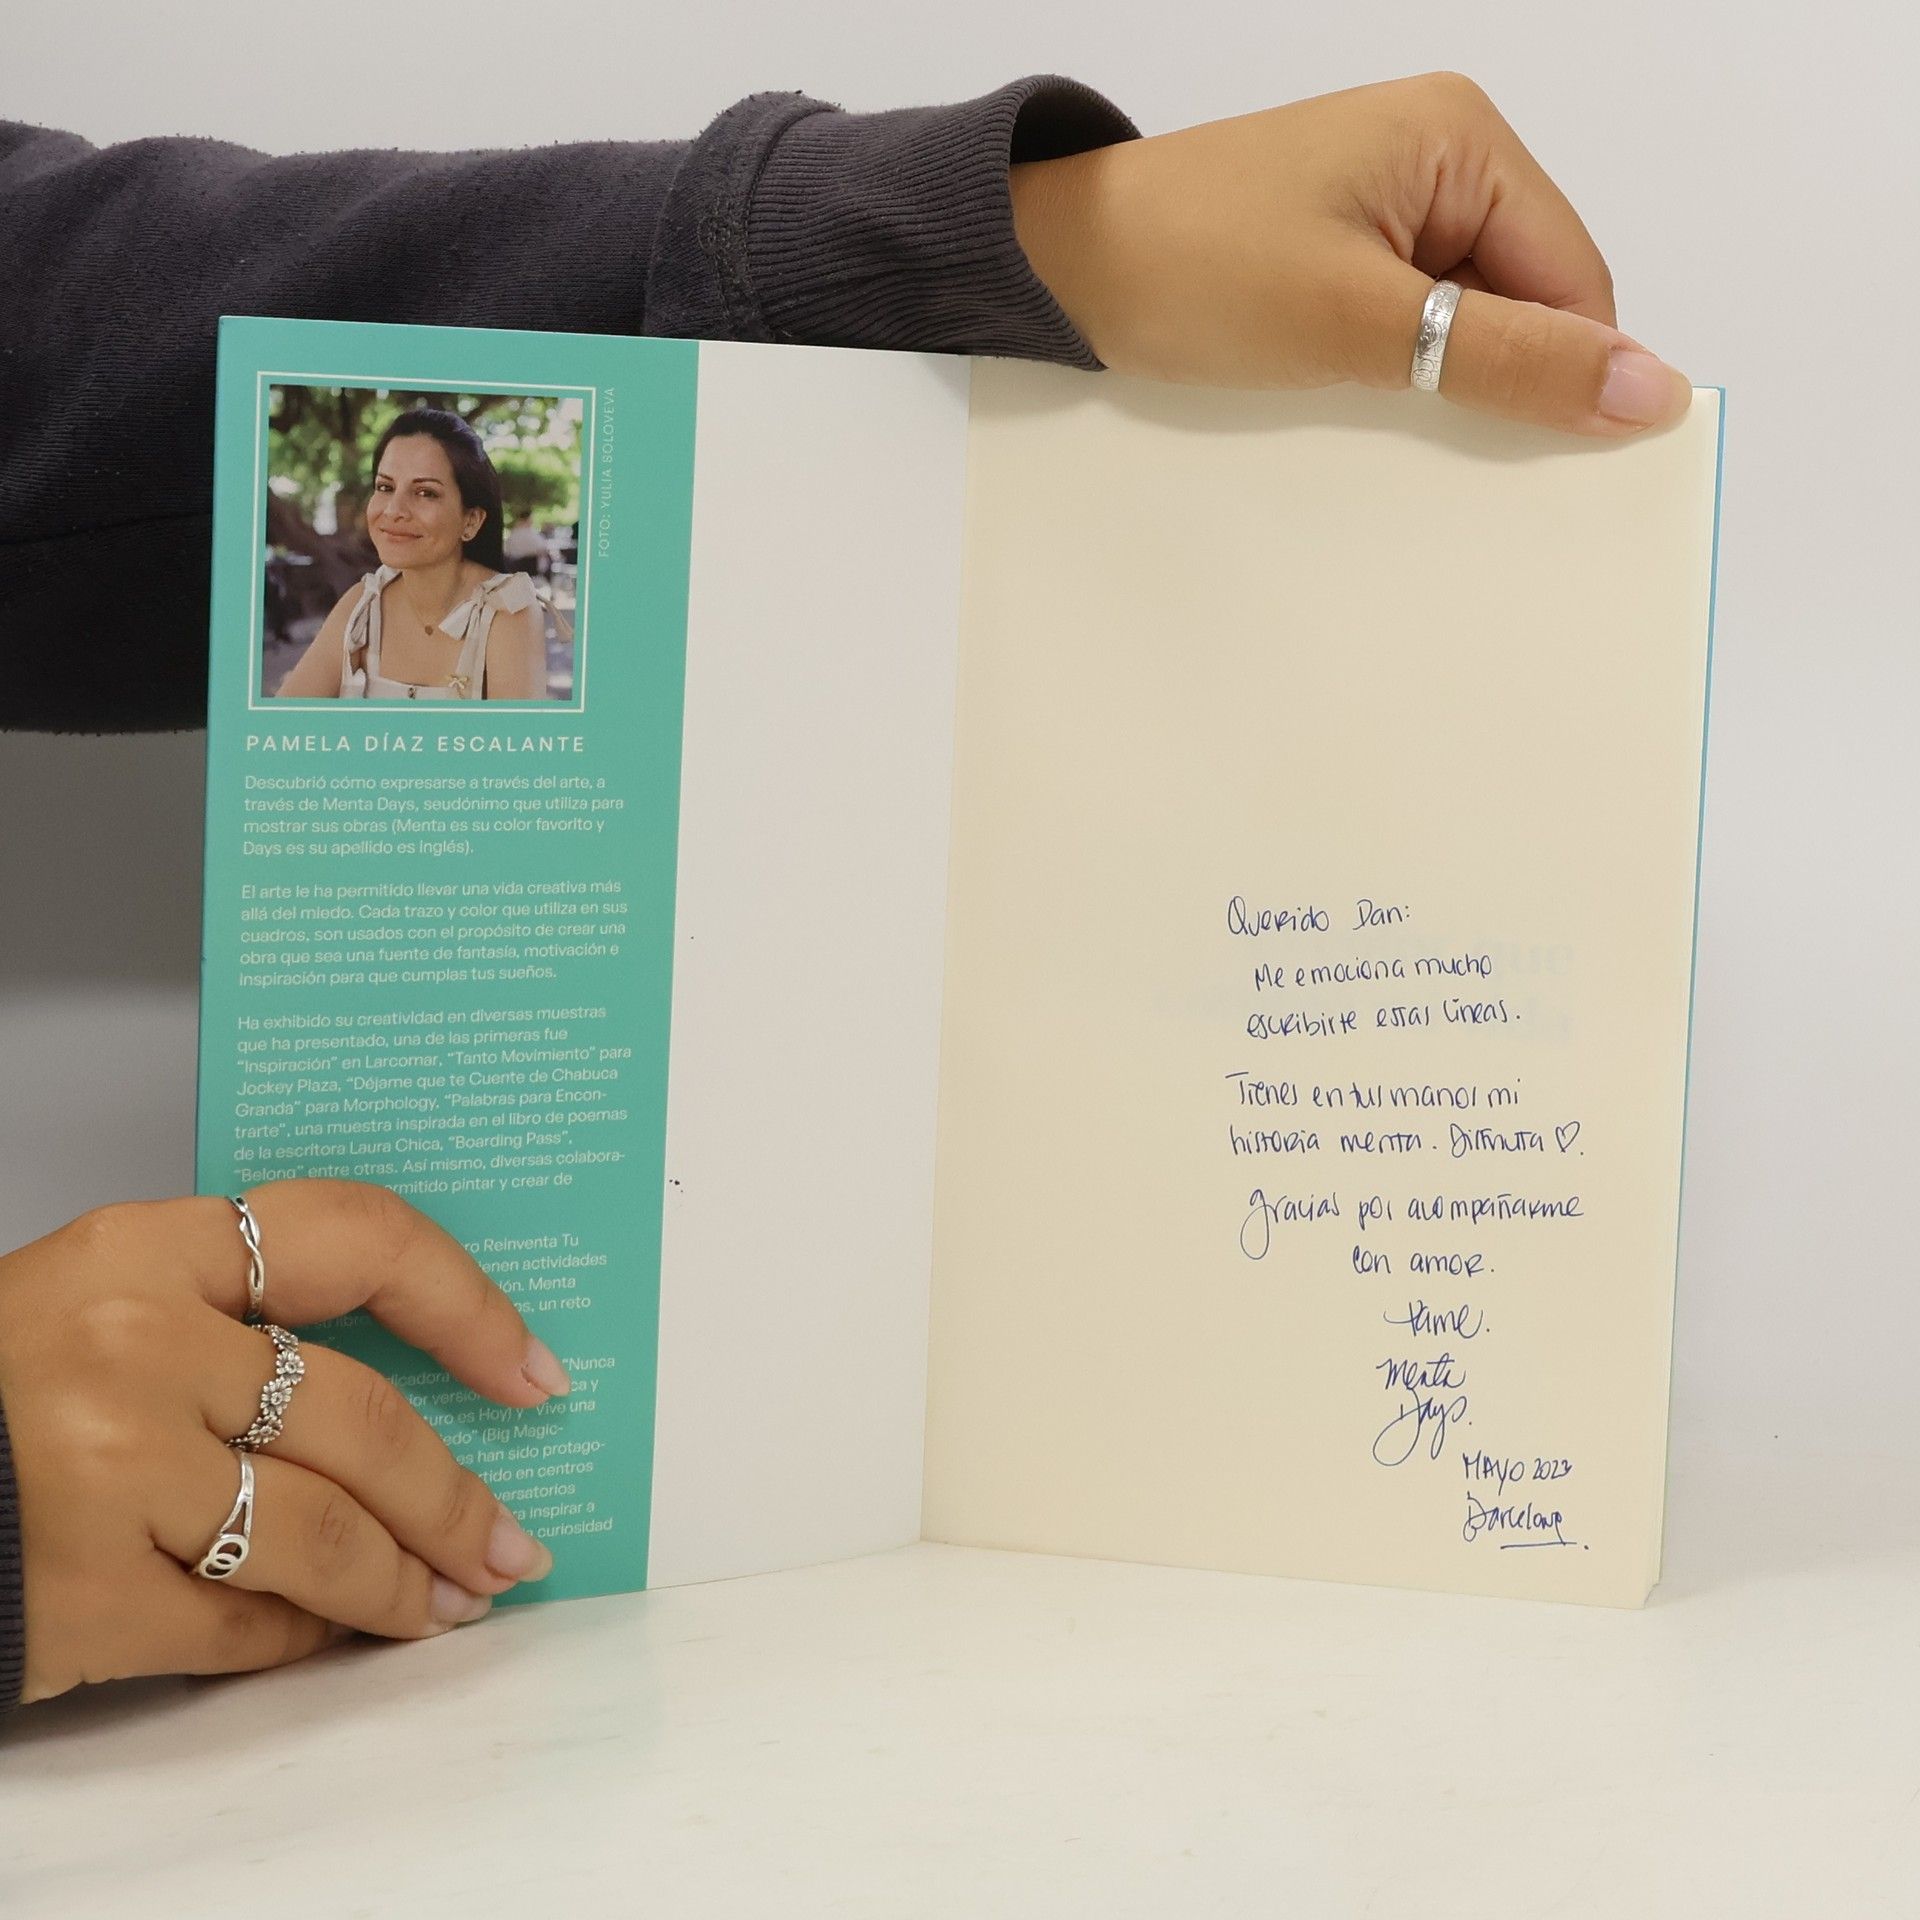 FOTO: YULIA BOLOVEVA
PAMELA DÍAZ ESCALANTE
Descubrió cómo expresarse a través del arte, a
través de Menta Days, seudónimo que utiliza para
mostrar sus obras (Menta es su color favorito y
Days es su apellido es inglés).
El arte le ha permitido llevar una vida creativa más
allá del miedo. Cada trazo y color que utiliza en sus
cuadros, son usados con el propósito de crear una
obra que sea una fuente de fantasía, motivación e
inspiración para que cumplas tus sueños.
Ha exhibido su creatividad en diversas muestras
que ha presentado, una de las primeras fue
“Inspiración” en Larcomar, “Tanto Movimiento” para
Jockey Plaza, “Déjame que te Cuente de Chabuca
Granda” para Morphology, “Palabras para Encon-
trarte”, una muestra inspirada en el libro de poemas
de la escritora Laura Chica, “Boarding Pass”,
“Belong” entre otras. Así mismo, diversas colabora-
rmitido pintar y crear de
ro Reinventa Tu
ienen actividades
ión. Menta
os, un reto
su libro
“Nunca
dicadora
ca y
ior version
turo es Hoy) y “Vive una
edo” (Big Magic-
es han sido protago-
rtido en centros
versatorios
ra inspirar a
a curiosidad
Querido Dan:
Me emociona mucho
escribirte estas líneas.
Tienes en tus manos mi
historia menta. Disfruta ♡.
Gracias por acompañarme
con amor.
Pame.
Menta
Days.
MAYO 2023
Barcelona.